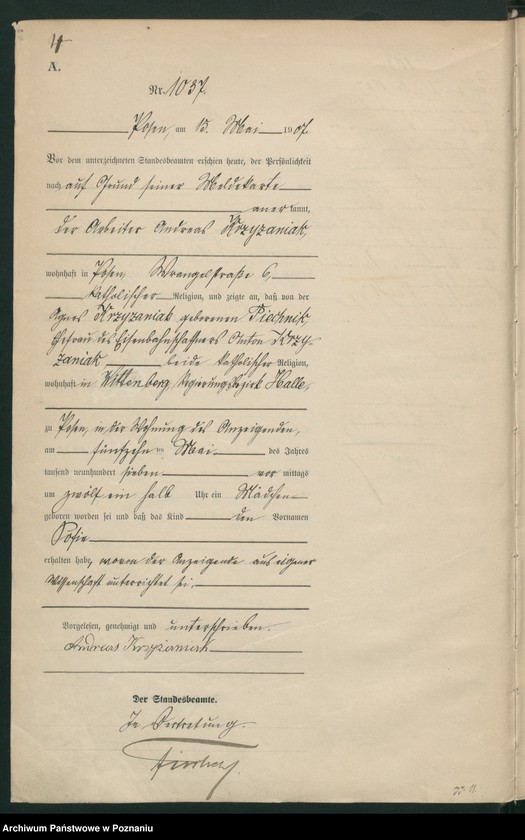 A.
Nr. 1037.
Posen, am 15. Mai 1907.
Vor dem unterzeichneten Standesbeamten erschien heute, der Persönlichkeit
nach auf Grund seiner Meldekarte
anerkannt,
der Arbeiter Andreas Krzyzaniak,
wohnhaft in Posen, Wrangelstraße 6,
katholischer Religion, und zeigte an, daß von der
Agnes Krzyzaniak geborenen Piechnik,
Ehefrau des Eisenbahnschaffners Anton Krzy-
zaniak beide katholischer Religion,
wohnhaft in Wittenberg, Regierungsbezirk Halle,
zu Posen, in der Wohnung des Anzeigenden,
am fünfzehn ten Mai des Jahres
tausend neunhundert sieben vor mittags
um zwölf ein halb Uhr ein Mädchen
geboren worden sei und daß das Kind den Vornamen
Sofie
erhalten habe, wovon der Anzeigende aus eigener
Wissenschaft unterrichtet sei.
Vorgelesen, genehmigt und unterschrieben.
Andreas Krzyzaniak
Der Standesbeamte.
In Vertretung.
Archiwum Państwowe w Poznaniu